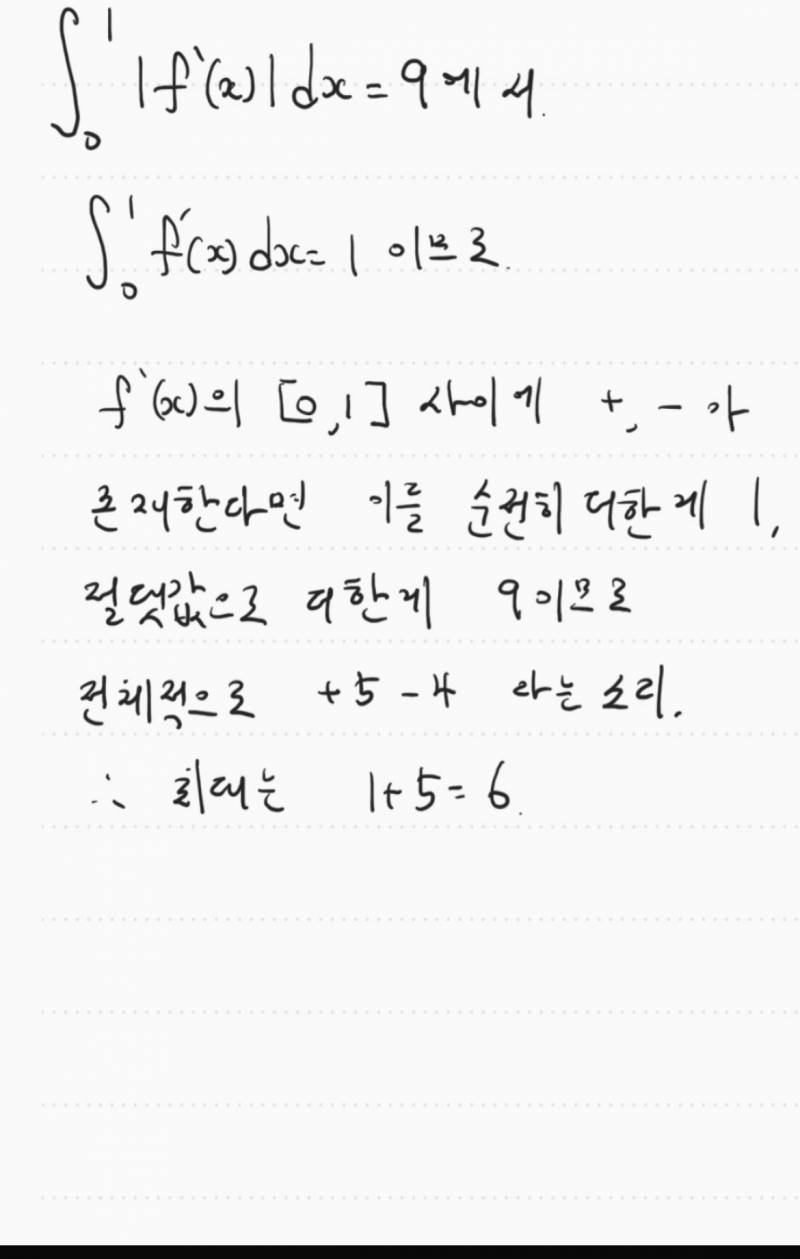 ∫₀¹ |f`(x)| dx = 9 에서.
∫₀¹ f'(x) dx = 1 이므로.
f`(x)의 [0,1] 사이에 +, - 가
존재한다면 이를 순전히 더한게 1,
절댓값으로 더한게 9이므로
전체적으로 +5 -4 라는 소리.
∴ 최대는 1+5=6.